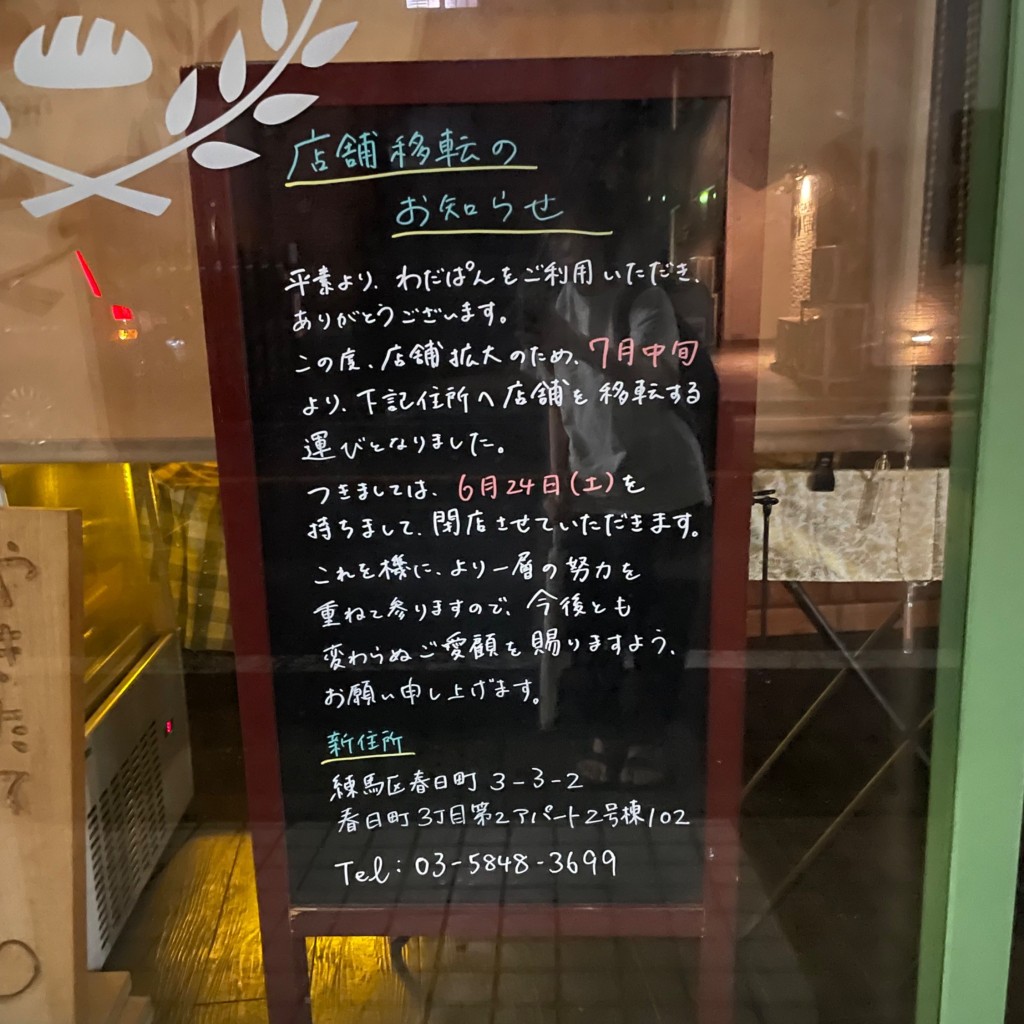 店舗移転の
お知らせ
平素より、わだぱんをご利用いただき、
ありがとうございます。
この度、店舗拡大のため、7月中旬
より、下記住所へ店舗を移転する
運びとなりました。
つきましては、6月24日(土)を
持ちまして、閉店させていただきます。
これを機に、より一層の努力を
重ねて参りますので、今後とも
変わらぬご愛顧を賜りますよう、
お願い申し上げます。
新住所
練馬区春日町3-3-2
春日町3丁目第2アパート2号棟102
Tel:03-5848-3699